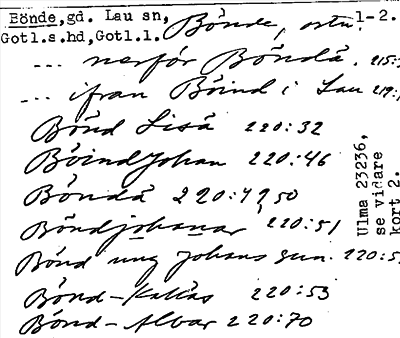 Bönde,gd. Lau sn,
Gotl.s.hd,Gotl.l.
Bönde, ortn. 1-2.
... nerför Böndå. 215:
... ifran Böind i Lau 219:
Bönd Liså 220:32
Böind Johan 220:46
Böndå 220:49, 50
Böndjohanar 220:51
Bönd ung Johans sun. 220:5
Bönd-Kallas 220:53
Bönd-Alvar 220:70
Ulma 23236,
se vidare
kort 2.